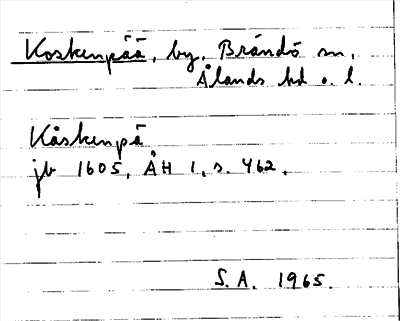 Koskenpää, by, Brändö sn,
Ålands hd o. l.
Kåskenpä
jb 1605, ÅH 1, s. 462.
S.A. 1965.